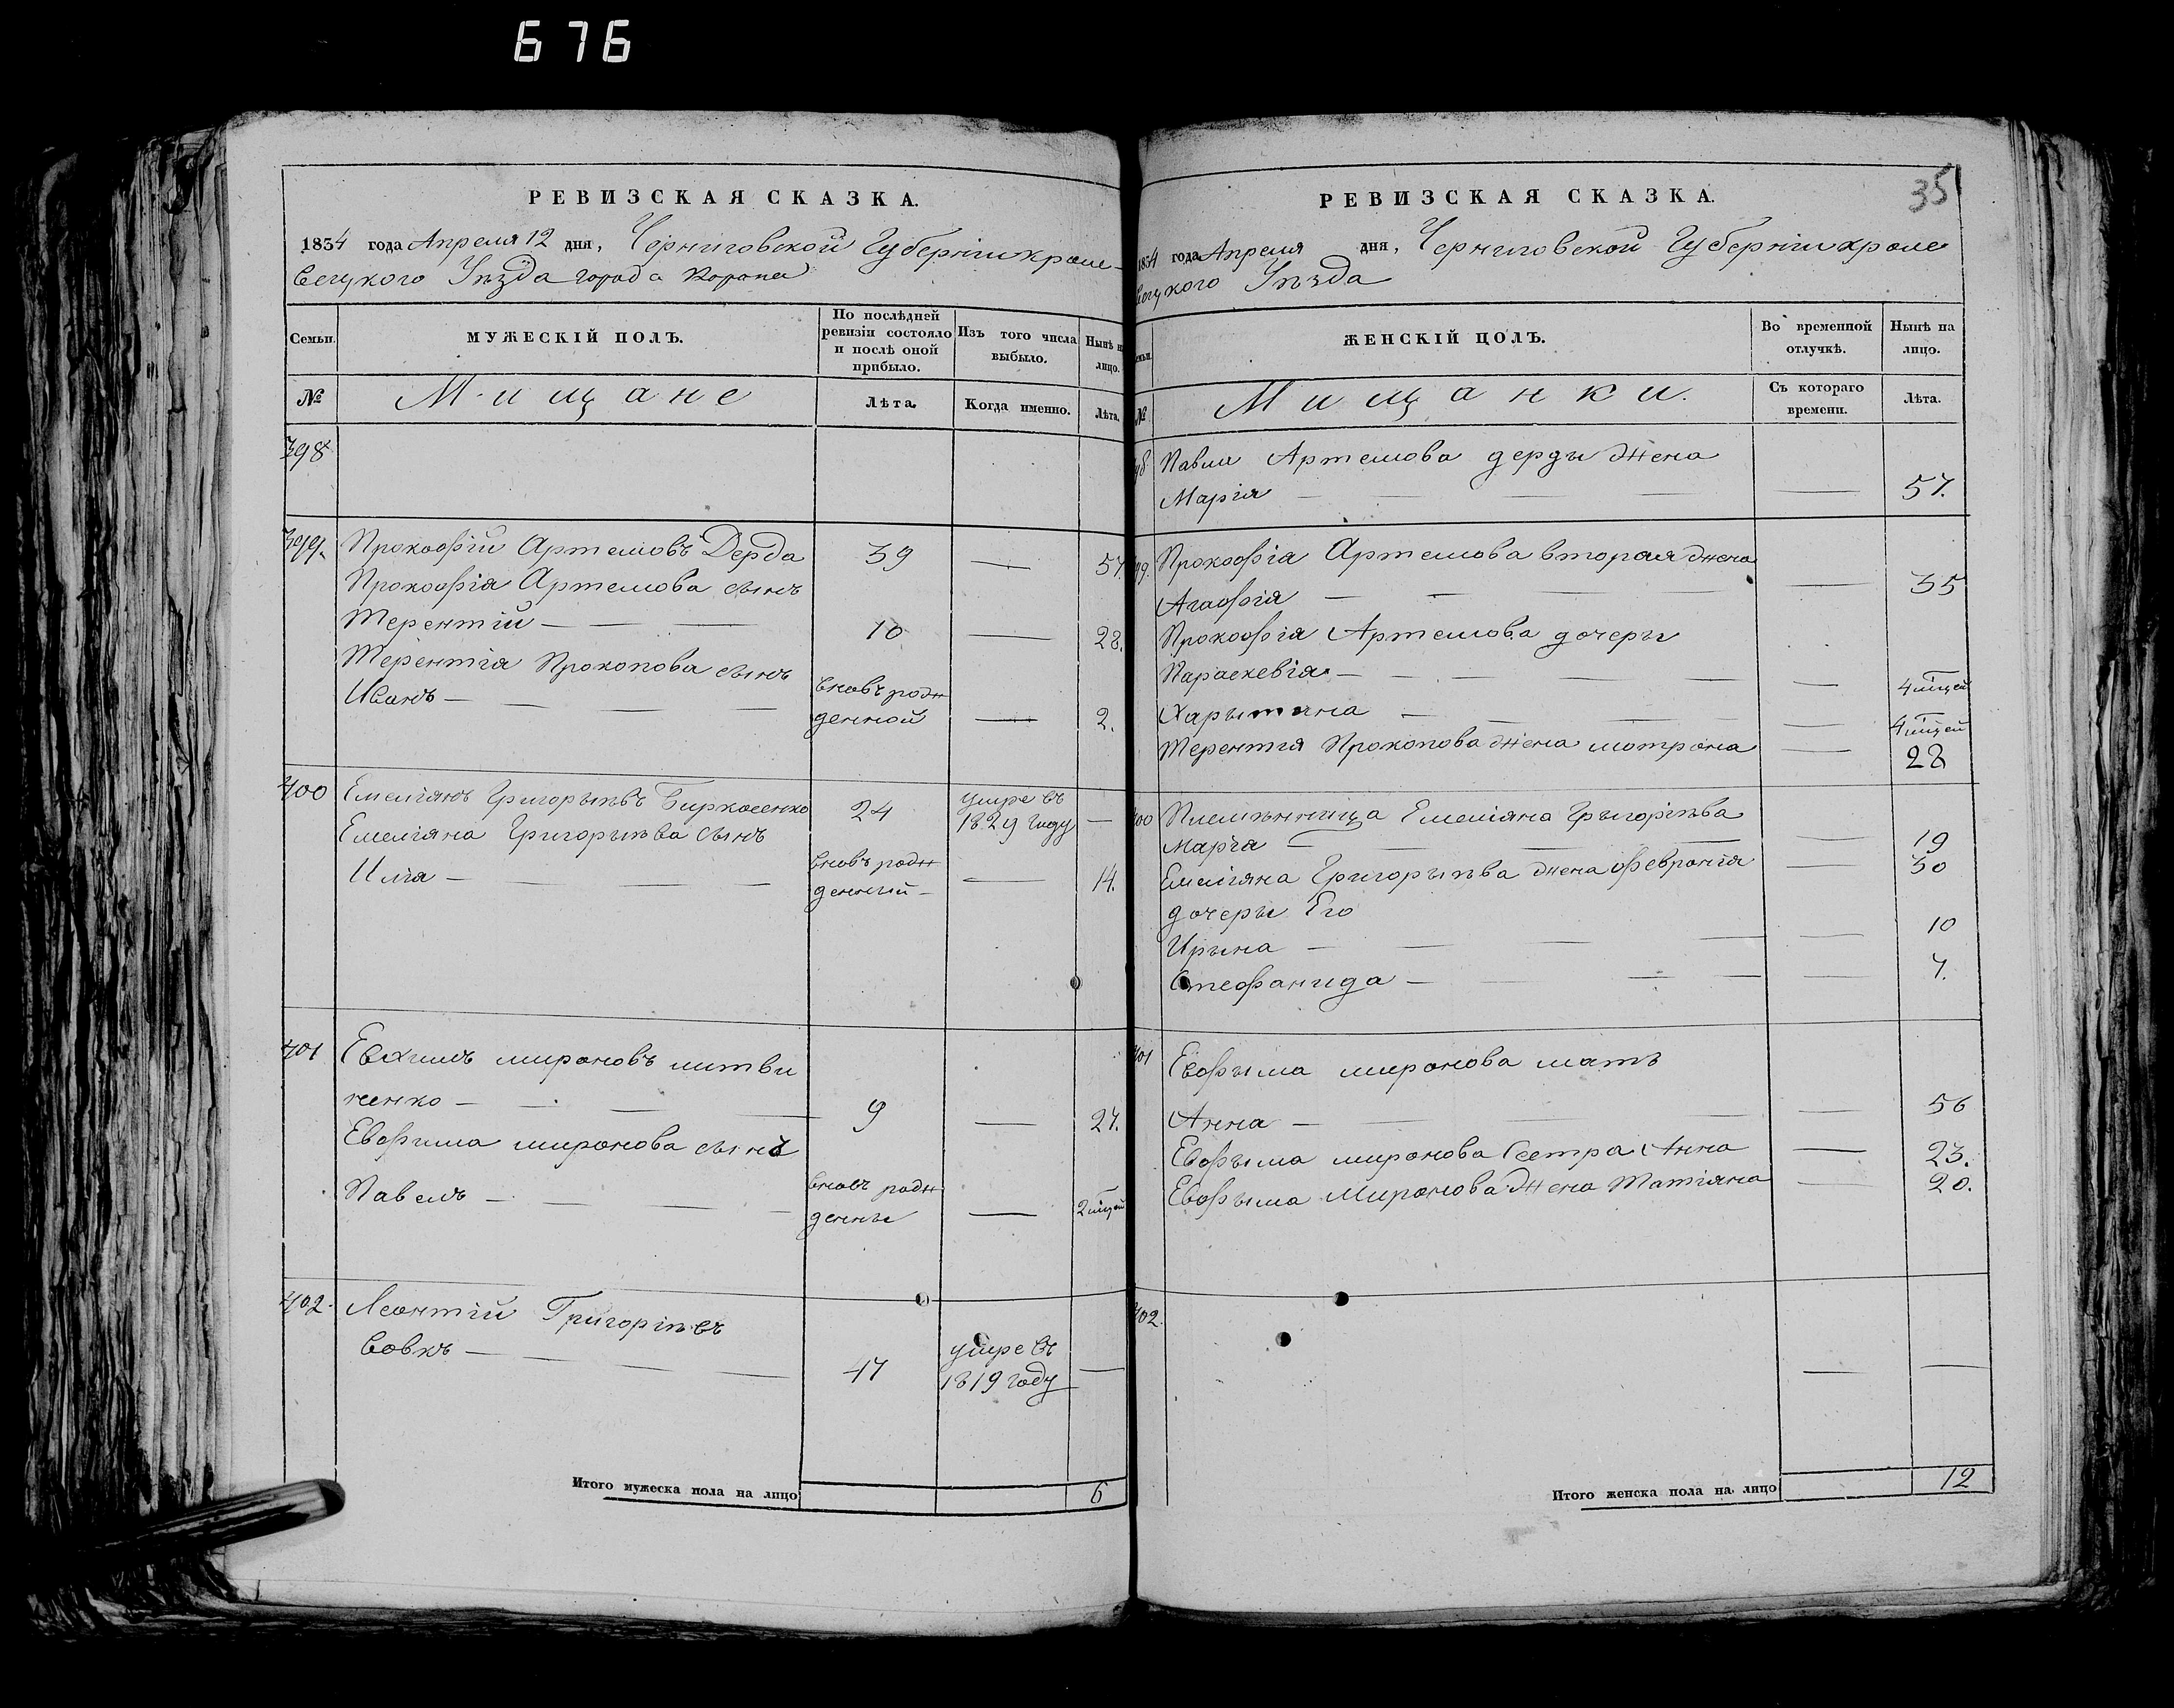 676
РЕВИЗСКАЯ СКАЗКА.
1834 года Апреля 12 дня, Черниговской Губерніи кроле-
вецкого Уѣзда города Коропа
Семьи.
МУЖЕСКІЙ ПОЛЪ.
По послѣдней
ревизіи состояло
и послѣ оной
прибыло.
Изъ того числа
выбыло.
Нынѣ на
лицо.
№
Мищане
Лѣта.
Когда именно.
Лѣта.
398
399. Прокофій Артемовъ Дерда 39 — 57.
Прокофія Артемова сынъ
Терентій — 10 — 28.
Терентія Прокопова сынъ
Иванъ — вновь рож
денной — 2.
400 Емеліянъ Григорьевъ 24 умре въ
1829 году —
Емеліяна Григорьѣва сынъ
Илія — вновь рож
денный — — 14.
401 Евхимъ мироновъ литви
ненко — 9 — 27.
Евфима миронова сынъ
Павелъ — вновь рож
денны — 2 мцей
402. Леонтій Григоріѣвъ
Вовкъ — 47 умре въ
1819 году —
Итого мужеска пола на лицо 6
РЕВИЗСКАЯ СКАЗКА.
35
1834 года Апреля дня, Черниговской Губерніи кроле
вецкого Уѣзда
ЖЕНСКІЙ ПОЛЪ.
Во временной
отлучкѣ.
Нынѣ на
лицо.
№
Мищанки.
Съ котораго
времени.
Лѣта.
98 Павла Артемова дерды жена
Марія — — 57.
99. Прокофія Артемова вторая жена
Агафія — — 35
Прокофія Артемова дочеры
Параскевія — — 4 мцей
Харытына — — 4 мцей
Терентія Прокопова жена мотрона — 28
400 Племѣнница Емеліяна Грыгоріѣва
марія — — 19
Емеліяна Григорьѣва жена феврония — 30
дочеры Его
Ирына — — 10
Стефанида — — 7.
401 Евфыма миронова мать
Анна — — 56
Евфыма миронова Сестра Анна — 23.
Евфыма Миронова жена Татіяна — 20.
402.
— —
Итого женска пола на лицо 12